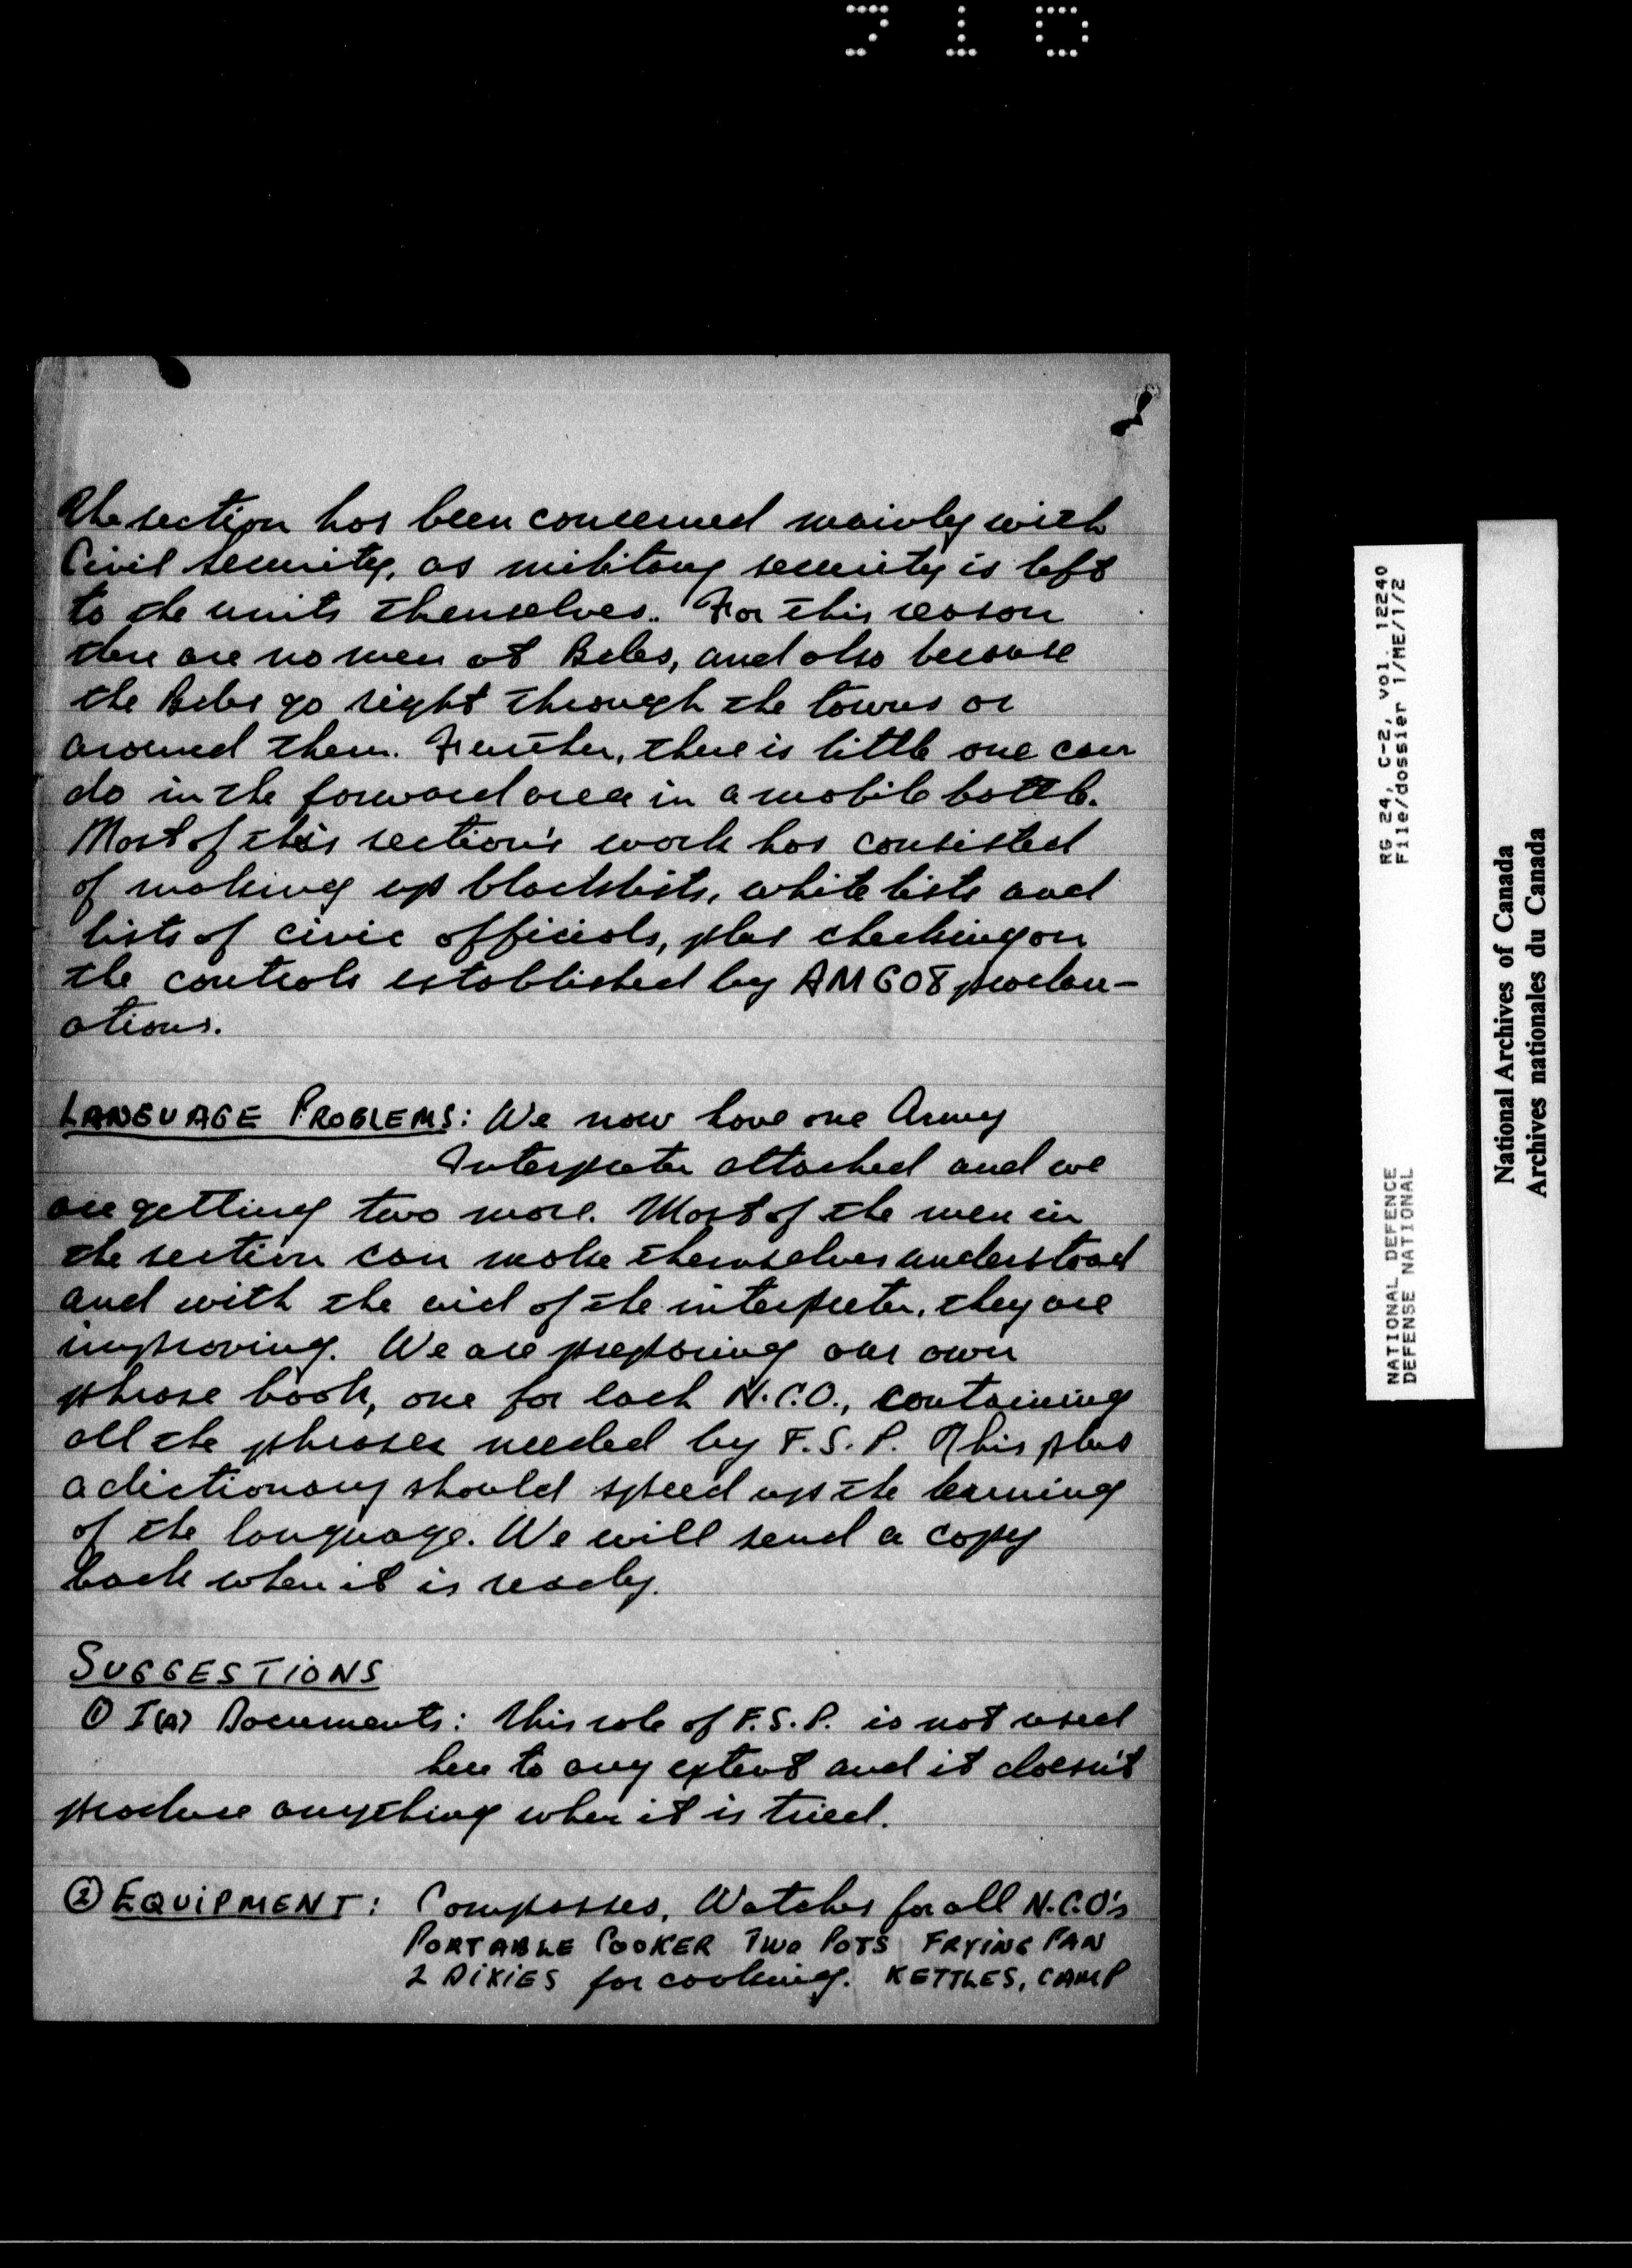 The section has been concerned mainly with
Civil security, as military security is left
to the units themselves. For this reason
there are no men at Bdes, and also because
the Bdes go right through the towns or
around them. Further, there is little one can
do in the forward area in a mobile battle.
Most of this section's work has consisted
of making up blacklists, white lists and
lists of civic officials, plus checking on
the controls established by AMGOT proclam-
ations.
LANGUAGE PROBLEMS: We now have one Army
Interpreter attached and we
are getting two more. Most of the men in
the section can make themselves understood
and with the aid of the interpreter, they are
improving. We are preparing our own
phrase book, one for each N.C.O., containing
all the phrases needed by F.S.P. This plus
a dictionary should speed up the learning
of the language. We will send a copy
back when it is ready.
SUGGESTIONS
① I(A) Documents: This role of F.S.P. is not used
here to any extent and it doesn't
produce anything when it is tried.
② EQUIPMENT: Compasses, Watches for all N.C.O's
PORTABLE COOKER TWO POTS FRYING PAN
2 DIXIES for cooking. KETTLES, CAMP
RG 24, C-2, vol. 12240
File/dossier 1/ME/1/2
NATIONAL DEFENCE
DEFENSE NATIONAL
National Archives of Canada
Archives nationales du Canada